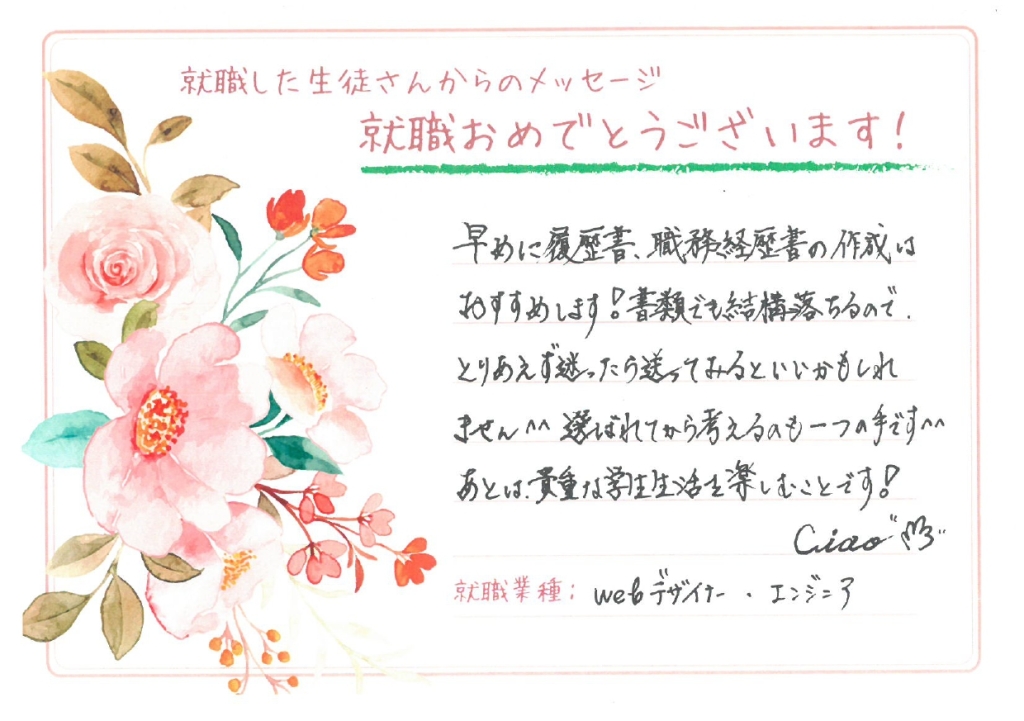 就職した生徒さんからのメッセージ
就職おめでとうございます！
早めに履歴書、職務経歴書の作成は
おすすめします！書類でも結構落ちるので、
とりあえず迷ったら送ってみるといいかもしれ
ません^^ 選ばれてから考えるのも一つの手です^^
あとは、貴重な学生生活を楽しむことです！
Ciao
就職業種： webデザイナー・エンジニア